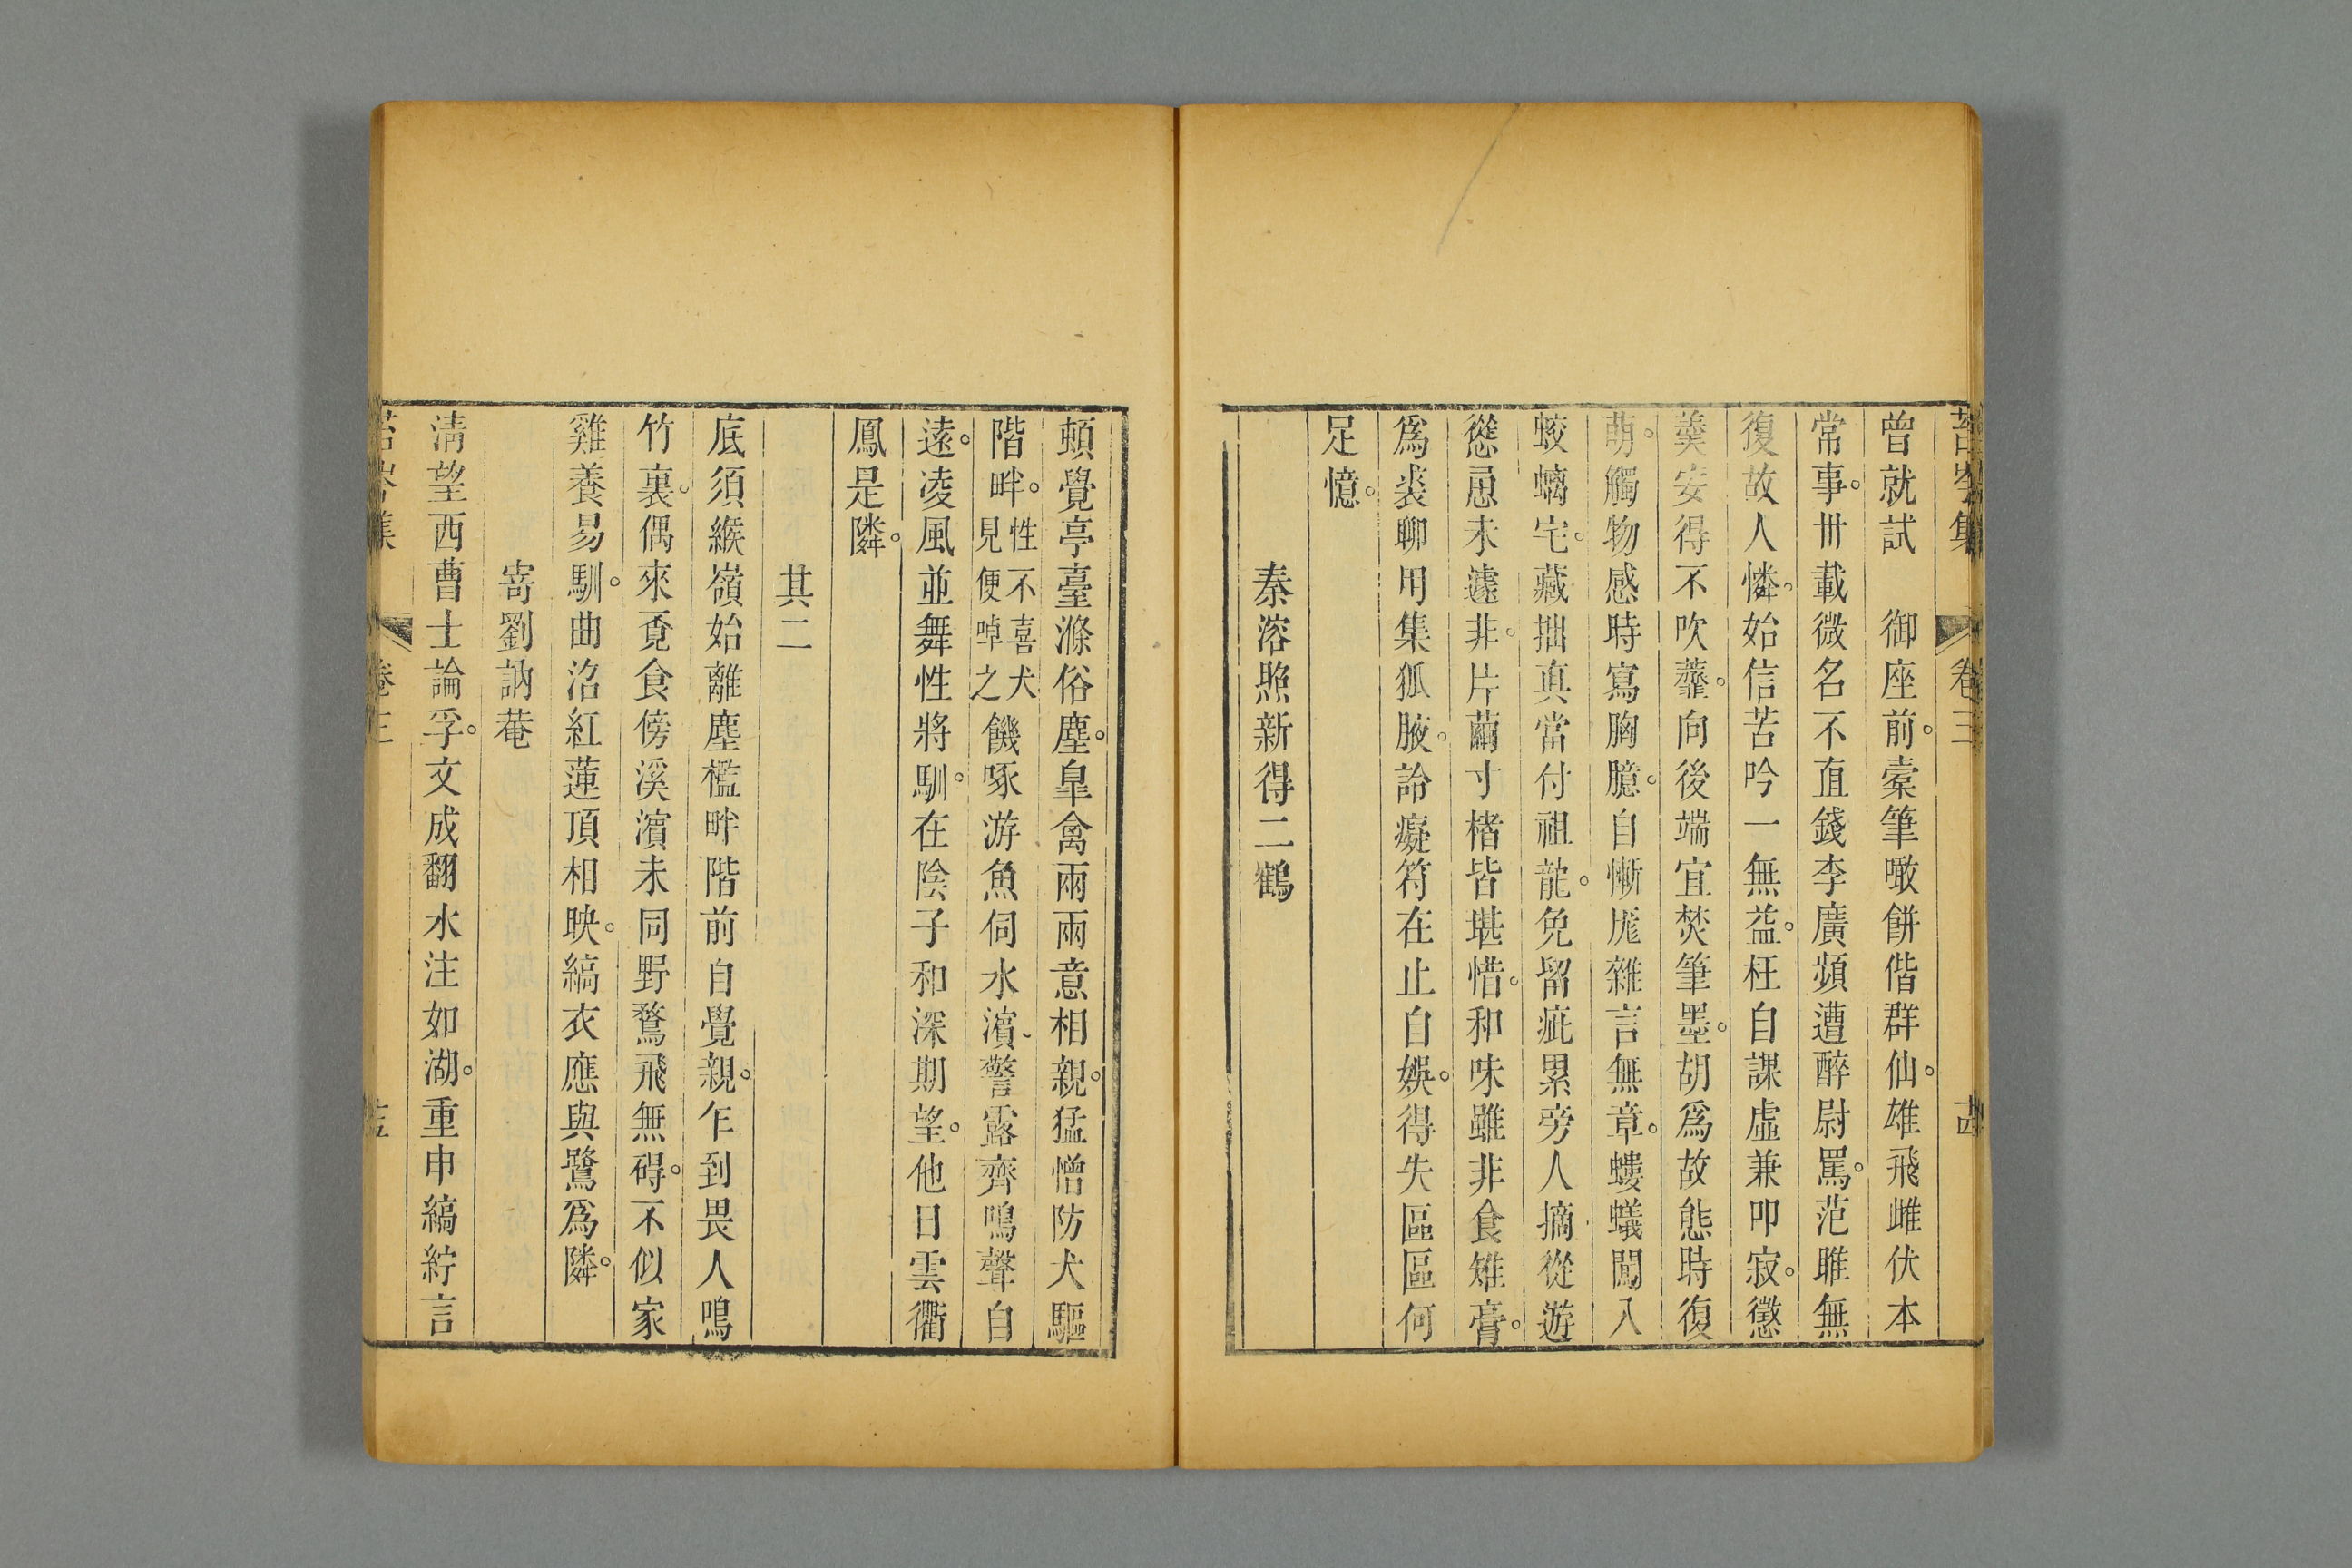 苔岑集　卷三　十四
曾就試　御座前。槖筆噉餅偕群仙。雄飛雌伏本
常事。卅載微名不直錢李廣頻遭醉尉罵。范雎無
復故人憐。始信苦吟一無益。枉自課虛兼叩寂。懲
羮安得不吹虀。向後端宜焚筆墨。胡爲故態時復
萌。觸物感時寫胸臆。自慚厖雜言無章。螻蟻闖入
蛟螭宅。藏拙真當付祖龍。免留疵累旁人摘從遊
慫恿未遽非。片繭寸楮皆堪惜。和味雖非食雉膏。
爲裘聊用集狐腋。詅癡符在止自娛。得失區區何
足憶。
秦溶照新得二鶴
頓覺亭臺滌俗塵。皐禽兩兩意相親。猛憎防犬驅
階畔。性不喜犬見便啅之饑啄游魚伺水濱。警露齊鳴聲自
遠。凌風並舞性將馴。在陰子和深期望。他日雲衢
鳳是隣。
其二
底須緱嶺始離塵檻畔階前自覺親。乍到畏人鳴
竹裏。偶來覔食傍溪濱未同野鶩飛無碍。不似家
雞養易馴。曲沼紅蓮頂相映。縞衣應與鷺爲隣。
寄劉訥菴
淸望西曹士論孚。文成翻水注如湖。重申縞紵言
苔岑集　卷三　十五